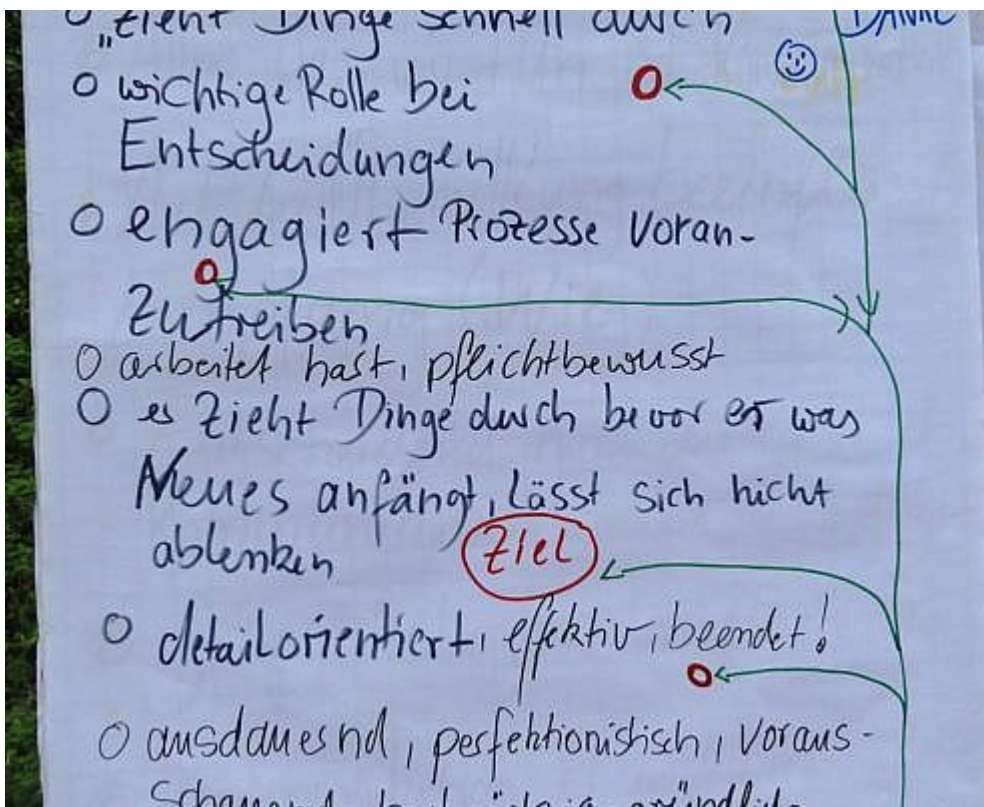 o „zieht Dinge schnell durch
o wichtige Rolle bei
Entscheidungen
o engagiert Prozesse voran-
zutreiben
o arbeitet hart, pflichtbewusst
o er zieht Dinge durch bevor er was
Neues anfängt, lässt sich nicht
ablenken
Ziel
o detailorientiert, effektiv, beendet!
o ausdauernd, perfektionistisch, voraus-
schauend